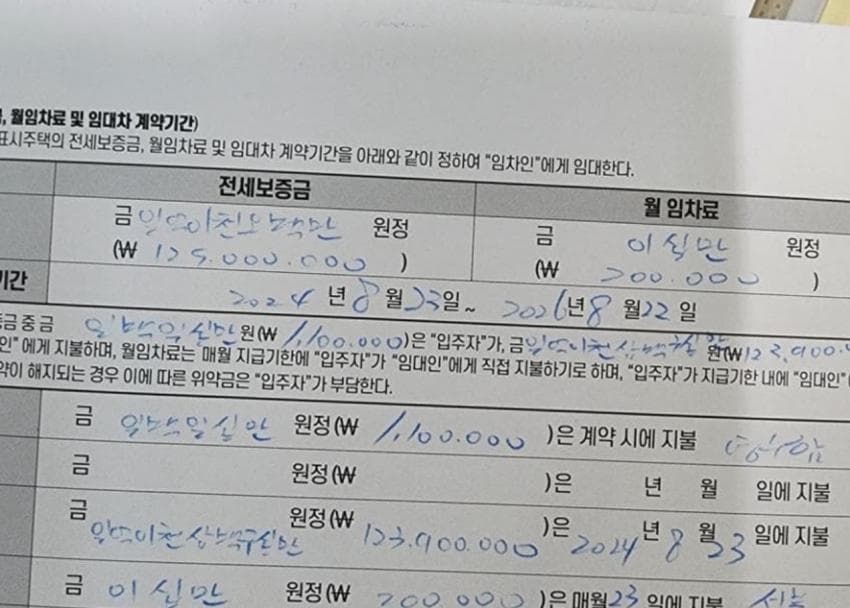 , 월임차료 및 임대차 계약기간)
표시주택의 전세보증금, 월임차료 및 임대차 계약기간을 아래와 같이 정하여 "임차인"에게 임대한다.
전세보증금 월 임차료
금 일억이천오백만 원정 금 이십만 원정
(₩ 125.000.000 ) (₩ 200.000 )
기간 2024 년 8 월 23일~ 2026년 8 월 22 일
증금 중 금 원(₩ 1,100.000)은 "입주자"가, 금 원(₩123,900.
인" 에게 지불하며, 월임차료는 매월 지급기한에 "입주자"가 "임대인"에게 직접 지불하기로 하며, "입주자"가 지급기한 내에 "임대인"
약이 해지되는 경우 이에 따른 위약금은 "입주자"가 부담한다.
금 원정(₩ 1,100.000 )은 계약 시에 지불
금 원정(₩ )은 년 월 일에 지불
금 원정(₩ 123.900.000 )은 2024년 8 월 23 일에 지불
금 이십만 원정(₩ 200.000 )은 매월23 일에 지불